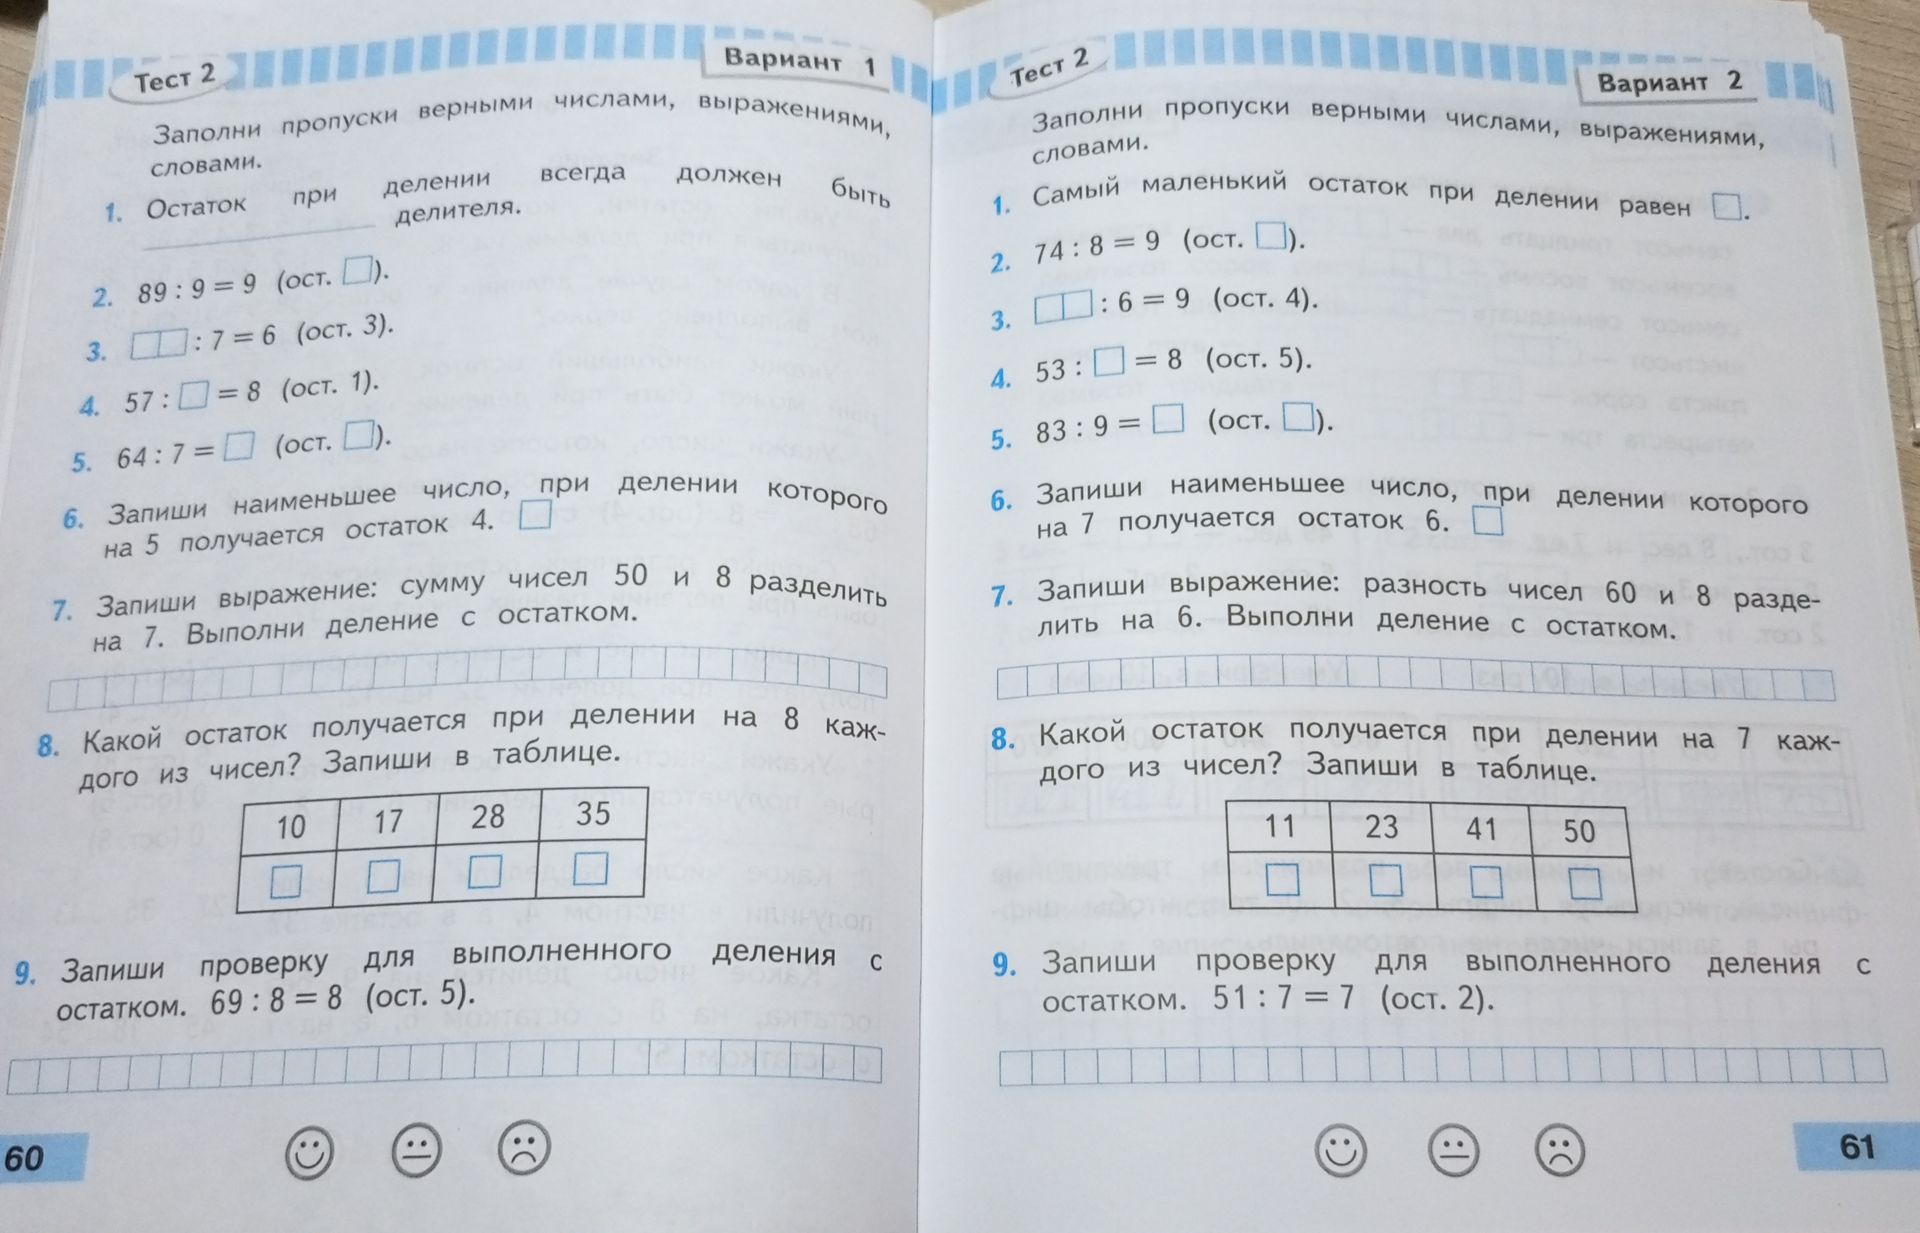 Тест 2
Вариант 1
Заполни пропуски верными числами, выражениями,
словами.
1. Остаток при делении всегда должен быть
делителя.
2. 89 : 9 = 9 (ост. ).
3. : 7 = 6 (ост. 3).
4. 57 : = 8 (ост. 1).
5. 64 : 7 = (ост. ).
6. Запиши наименьшее число, при делении которого
на 5 получается остаток 4.
7. Запиши выражение: сумму чисел 50 и 8 разделить
на 7. Выполни деление с остатком.
8. Какой остаток получается при делении на 8 каж-
дого из чисел? Запиши в таблице.
10 17 28 35
9. Запиши проверку для выполненного деления с
остатком. 69 : 8 = 8 (ост. 5).
60
Тест 2
Вариант 2
Заполни пропуски верными числами, выражениями,
словами.
1. Самый маленький остаток при делении равен .
2. 74 : 8 = 9 (ост. ).
3. : 6 = 9 (ост. 4).
4. 53 : = 8 (ост. 5).
5. 83 : 9 = (ост. ).
6. Запиши наименьшее число, при делении которого
на 7 получается остаток 6.
7. Запиши выражение: разность чисел 60 и 8 разде-
лить на 6. Выполни деление с остатком.
8. Какой остаток получается при делении на 7 каж-
дого из чисел? Запиши в таблице.
11 23 41 50
9. Запиши проверку для выполненного деления с
остатком. 51 : 7 = 7 (ост. 2).
61